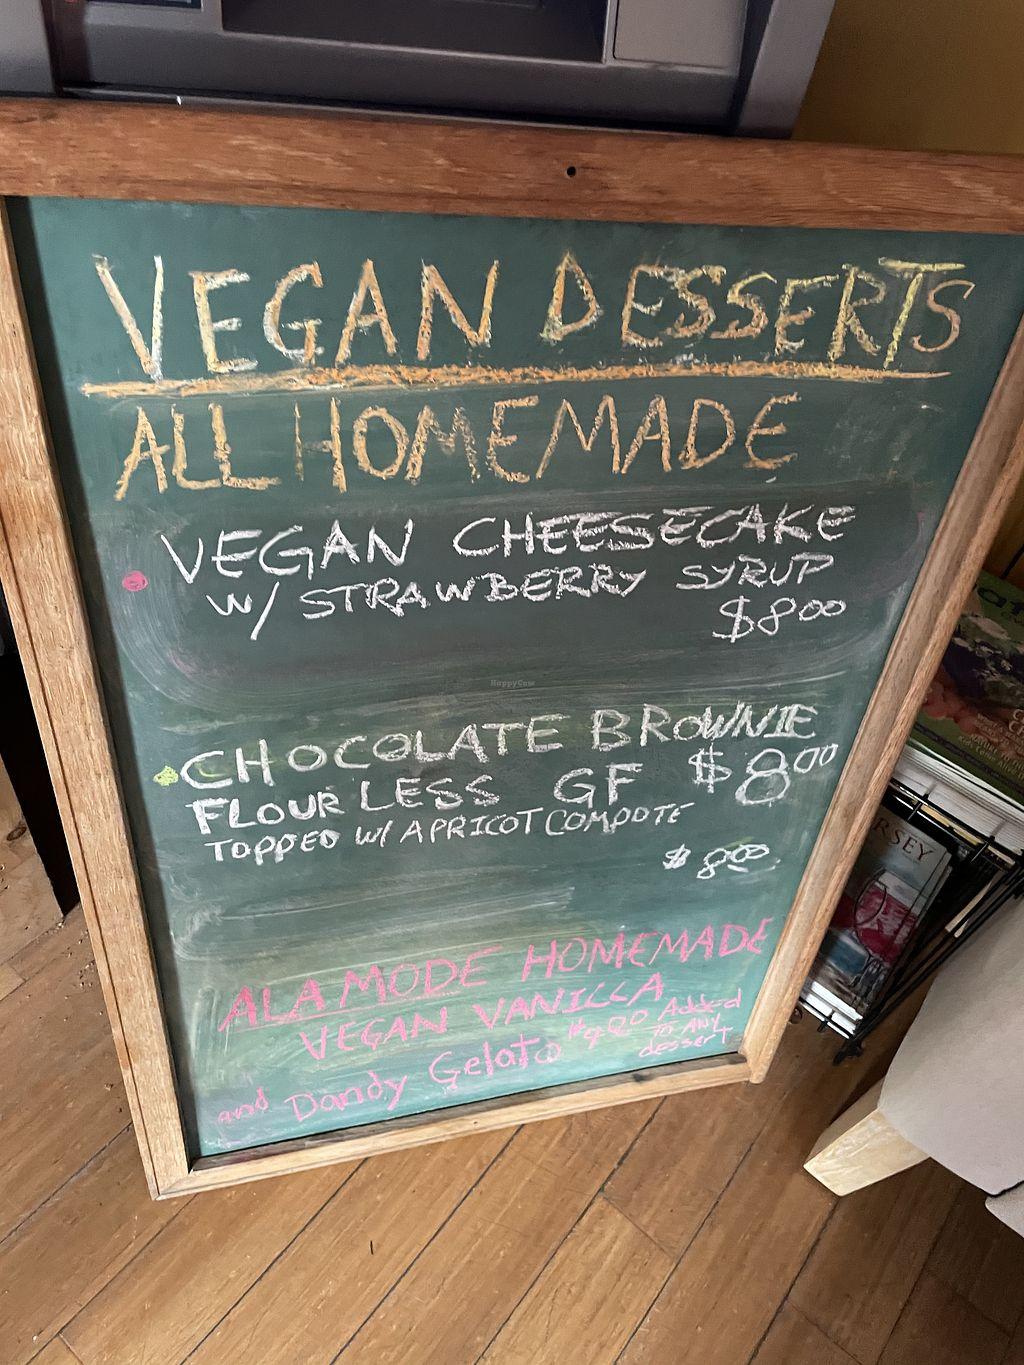 VEGAN DESSERTS
ALL HOMEMADE
VEGAN CHEESECAKE
W/ STRAWBERRY SYRUP
$8.00
HappyCow
CHOCOLATE BROWNIE
FLOURLESS GF $8.00
TOPPED W/ APRICOT COMPOTE
$8.00
ALA MODE HOMEMADE
VEGAN VANILLA
and Dandy Gelato
Added
TO ANY
dessert
RSEY